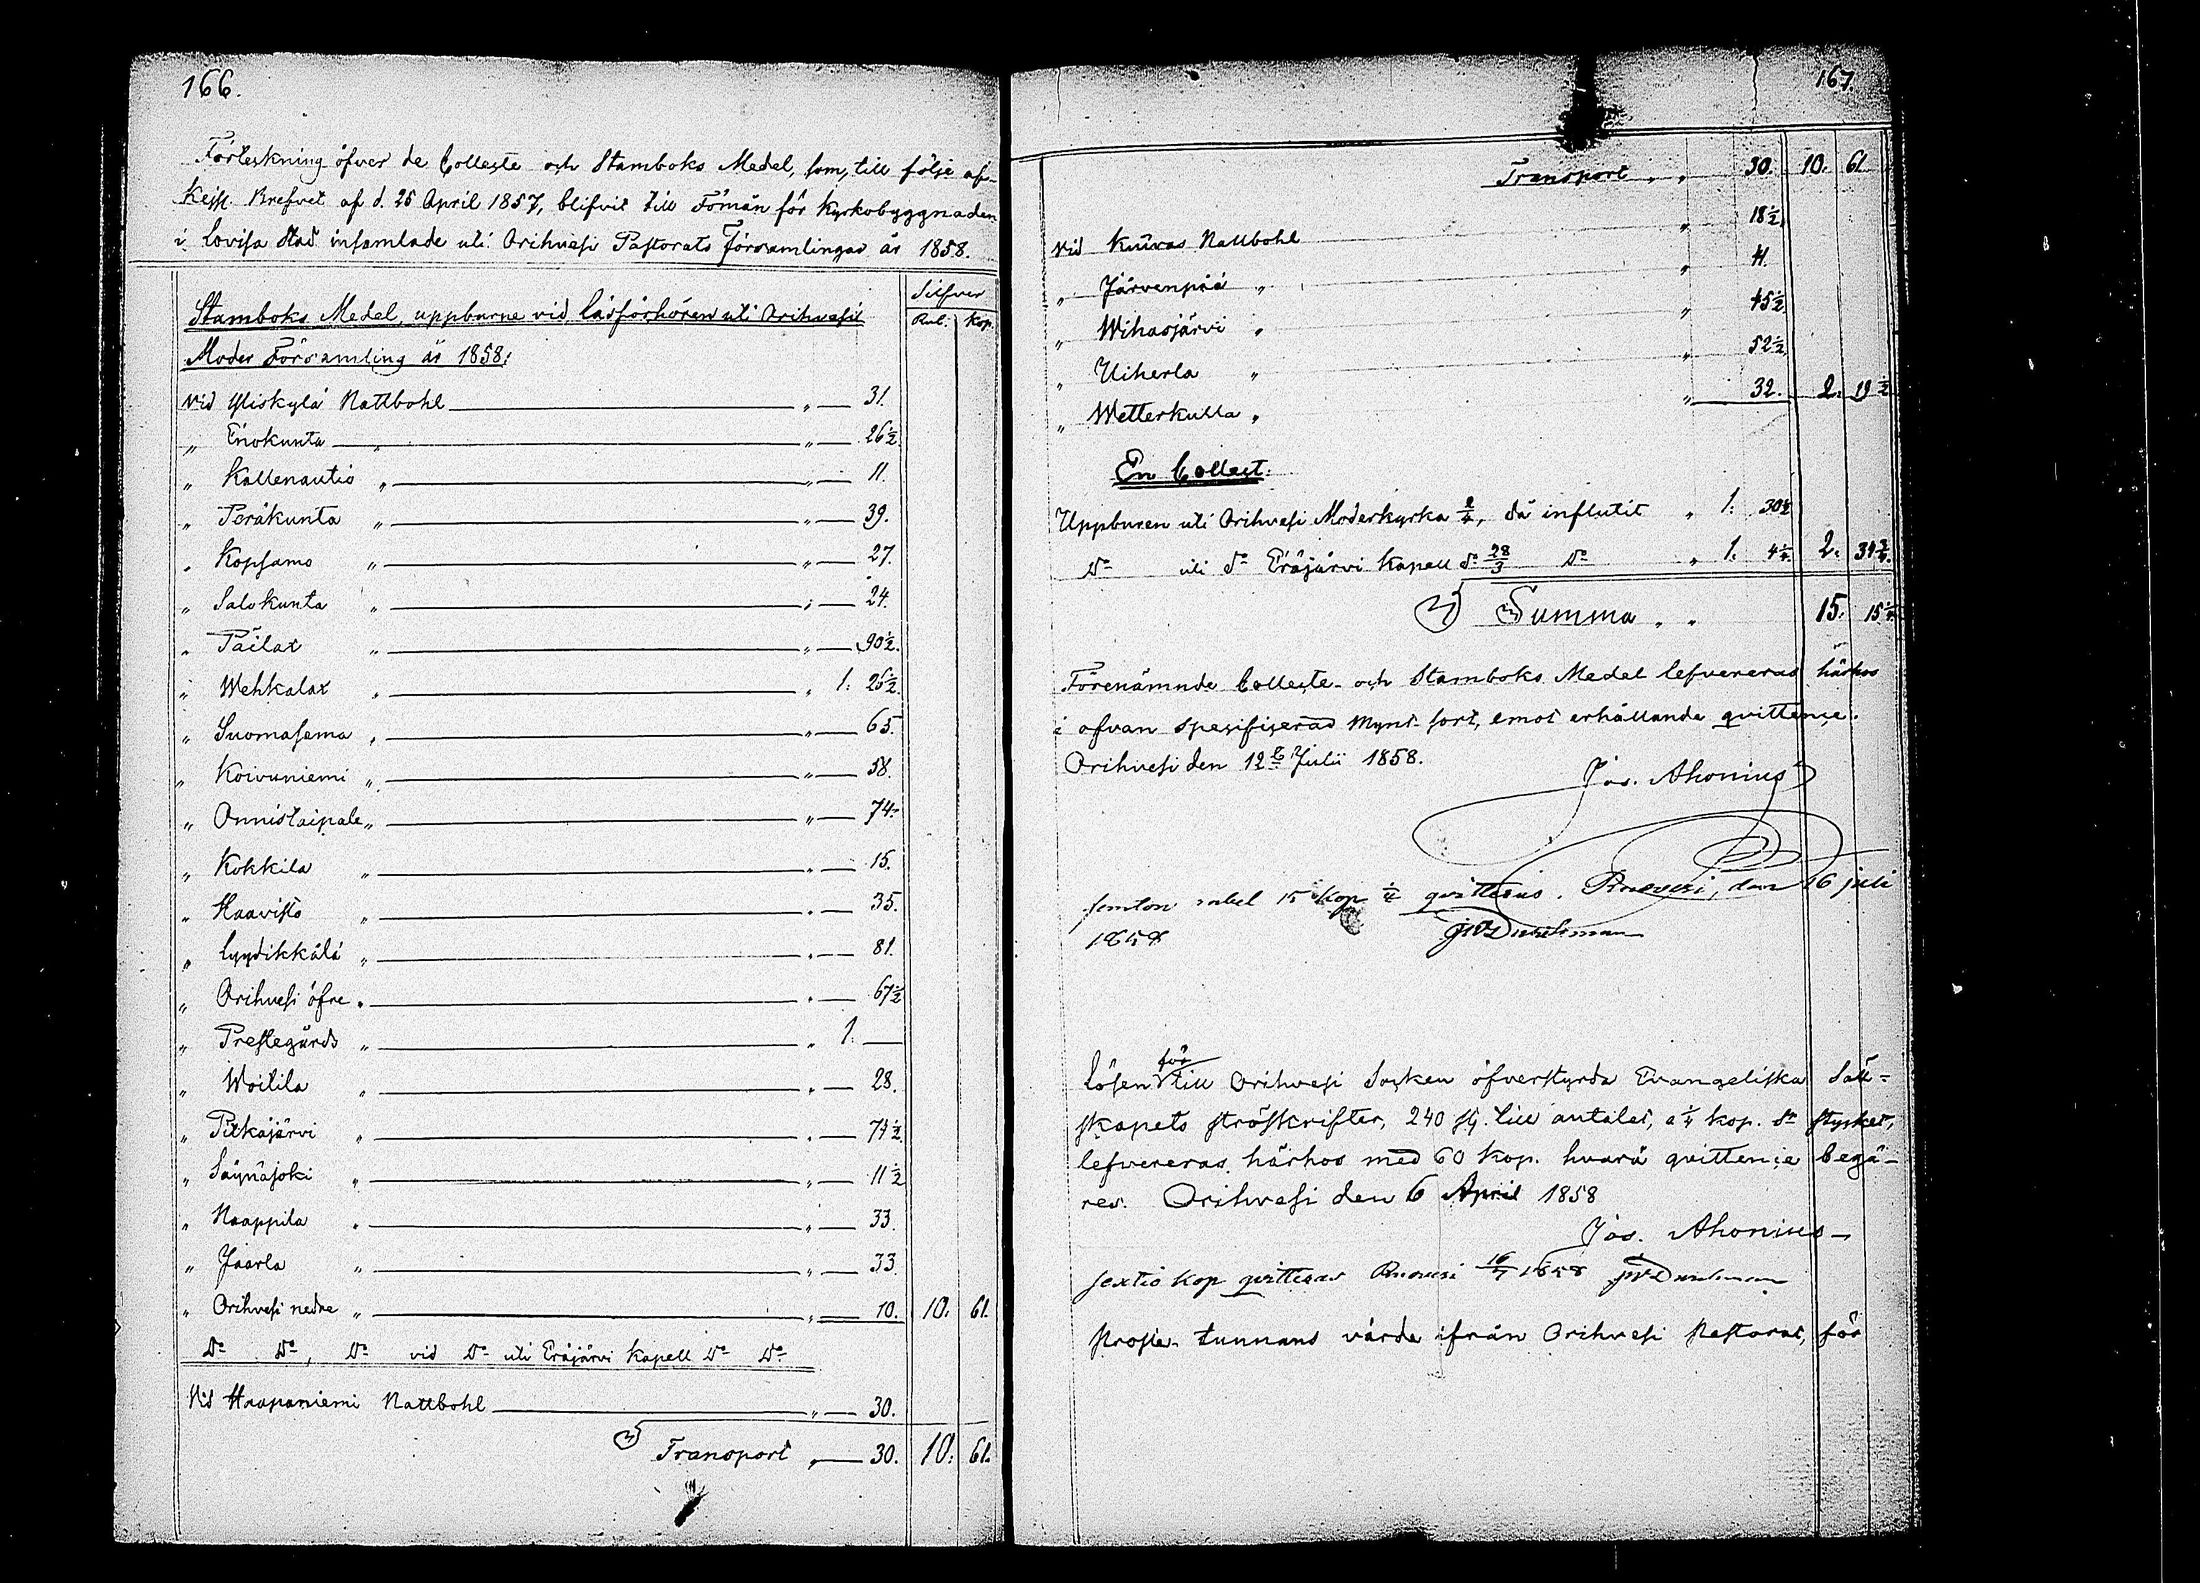 166.
Förteckning öfver de Collecte och Stamboks Medel, som, till följe af
Keiss. Brefvet af d. 25 April 1857, blifvit till Förmån för Kyrkobyggnaden
i Lovisa Stad insamlade uti Orihvesi Pastorats Församlingar år 1858.
Silfver
Rub. Kop.
Stamboks Medel, uppburne vid Läsförhören uti Orihvesi
Moder Församling år 1858:
Vid Yliskylä Nattbohl " 31.
" Enokunta " " 26½.
" Kallenautio " " 11.
" Peräkunta " " 39.
" Kopsamo " " 27.
" Salokunta " " 24.
" Päilax " " 90½.
" Wehkalax " " 1: 25½.
" Suomasema " " 65.
" Koivuniemi " " 58.
" Onnistaipale " " 74.
" Kokkila " " 15.
" Haavisto " " 35.
" Lyydikkälä " " 81.
" Orihvesi öfre " " 67½
" Prestegårds " " 1.
" Woitila " " 28.
" Pitkäjärvi " " 74½
" Säynäjoki " " 11½
" Naappila " " 33.
" Jaarla " " 33.
" Orihvesi nedre " " 10. 10. 61.
Do Do, Do vid Do uti Eräjärvi Kapell Do Do
Vid Haapaniemi Nattbohl " 30.
Transport " 30. 10. 61.
167.
Transport " " 30. 10. 61.
Vid Kuivas Nattbohl " 18½.
" Järvenpää " " 41.
" Wihasjärvi " " 45½
" Uiherla " " 52½
" Wetterkulla " " 32. 2. 19½
En Collect.
Uppburen uti Orihvesi Moderkyrka 2/4, då influtit " 1: 30½
Do uti do Eräjärvi Kapell do 28/3 Do " 1. 4¼ 2. 34¾.
Summa " " 15. 15¼
Förenämnde Collecte- och Stamboks Medel lefvereras härhos
i ofvan specificerad Mynt-sort, emot erhållande qvittence.
Orihvesi den 12te Julii 1858.
Jos. Ahonius
femton rubel 15 kop ¼ qvitteras. Ruovesi, den 16 juli
1858
Lösen för till Orihvesi Socken öfverstyrda Evangeliska Säll-
skapets ströskrifter, 240 st. till antalet, a ¼ kop. Sr stycket,
lefvereras härhos med 60 kop. hvarå qvittence begä-
res. Orihvesi den 6 April 1858
Jos. Ahonius
sextio kop qvitteras Ruovesi 16/7 1858
Proste-tunnans värde ifrån Orihvesi Pastorat, för